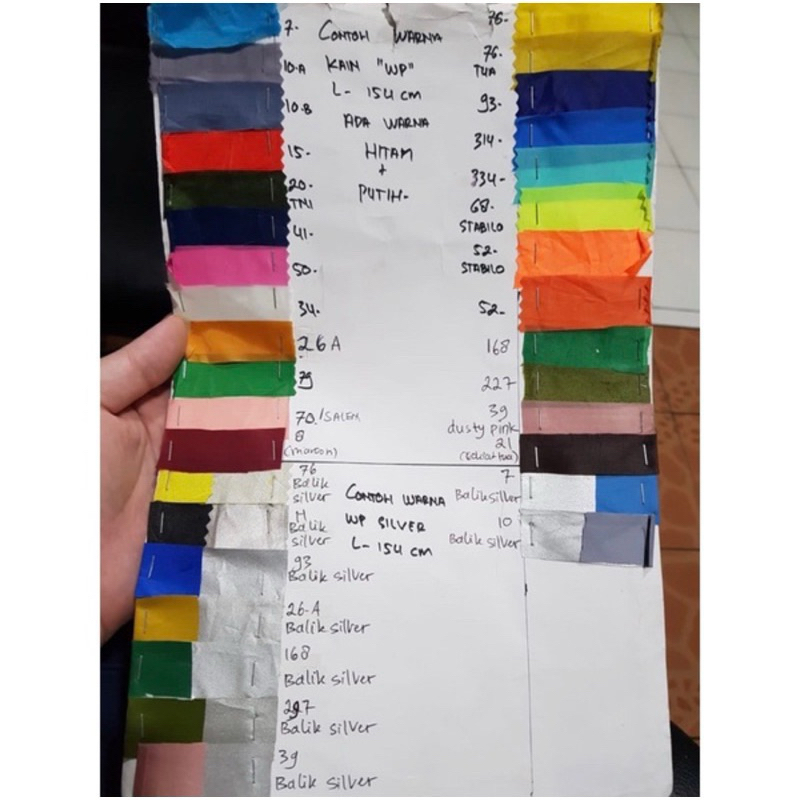 CONTOH WARNA
KAIN "WP"
L- 154 CM
ADA WARNA
HITAM
+
PUTIH-
7-
10.A
10.B
15-
20-
TNI
41-
50-
34-
26 A
79
70/SALEM
8
(maroon)
76-
76-
TUA
93-
314-
334-
68-
STABILO
52-
STABILO
52-
168
227
39
dusty pink
21
(coklat tua)
CONTOH WARNA
WP SILVER
L- 154 CM
76
Balik
silver
H
Balik
silver
93
Balik silver
26-A
Balik silver
168
Balik silver
227
Balik silver
39
Balik silver
7
Balik silver
10
Balik silver